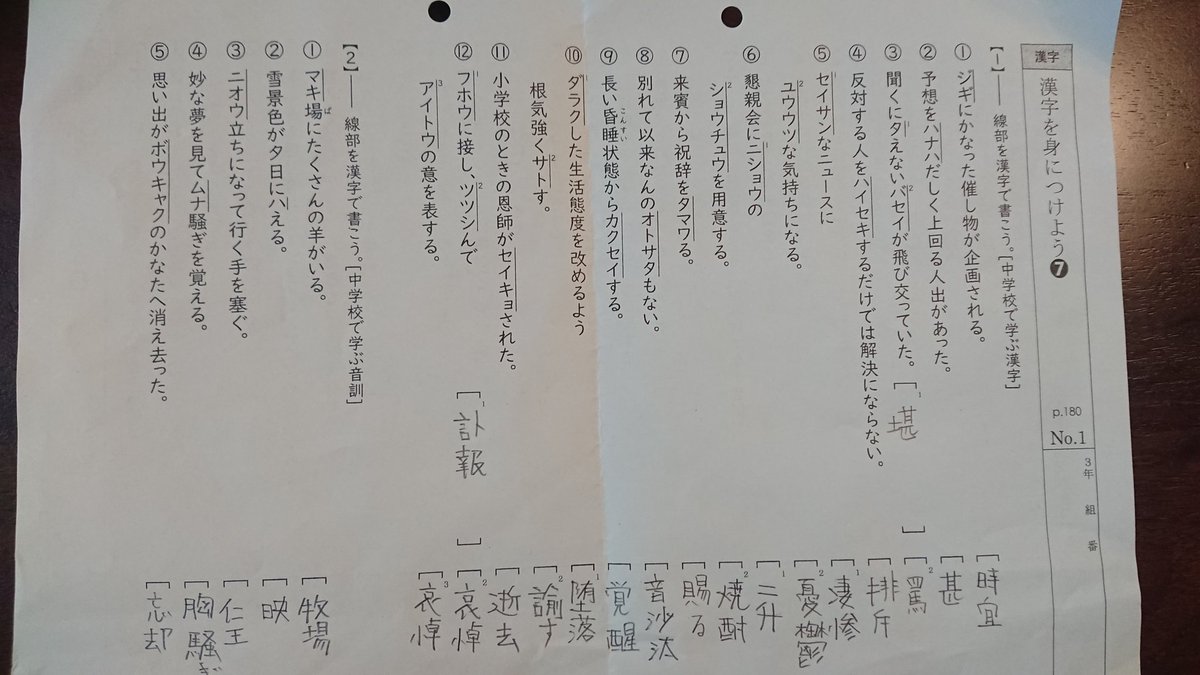 漢字
漢字を身につけよう❼
p.180
No.1
3年 組 番
【1】── 線部を漢字で書こう。[中学校で学ぶ漢字]
① ジギにかなった催し物が企画される。
[時宜
② 予想をハナハだしく上回る人出があった。
[甚
③ 聞くにタえないバセイが飛び交っていた。
[1 堪 ]
[2 罵
④ 反対する人をハイセキするだけでは解決にならない。
[排斥
⑤ セイサンなニュースに
[1 凄惨
ユウウツな気持ちになる。
[2 憂鬱
⑥ 懇親会にニショウの
[1 三升
ショウチュウを用意する。
[2 焼酎
⑦ 来賓から祝辞をタマワる。
[賜る
⑧ 別れて以来なんのオトサタもない。
[音沙汰
⑨ 長い昏睡こんすい状態からカクセイする。
[覚醒
⑩ ダラクした生活態度を改めるよう
[1 堕落
根気強くサトす。
[2 諭す
⑪ 小学校のときの恩師がセイキョされた。
[逝去
⑫ フホウに接し、ツツシんで
[1 訃報 ]
[2 哀悼
アイトウの意を表する。
[3 哀悼
【2】── 線部を漢字で書こう。[中学校で学ぶ音訓]
① マキ場ばにたくさんの羊がいる。
[牧場
② 雪景色が夕日にハえる。
[映
③ ニオウ立ちになって行く手を塞ぐ。
[仁王
④ 妙な夢を見てムナ騒ぎを覚える。
[胸騒ぎ
⑤ 思い出がボウキャクのかなたへ消え去った。
[忘却